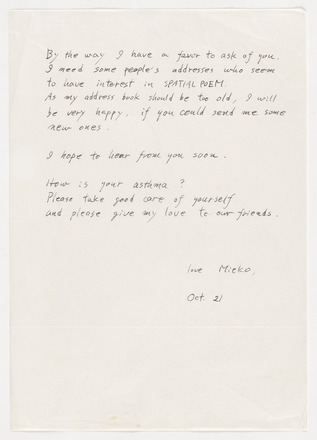 By the way I have a favor to ask of you.
I need some people's addresses who seem
to have interest in SPATIAL POEM.
As my address book should be too old, I will
be very happy, if you could send me some
new ones.
I hope to hear from you soon.
How is your asthma?
Please take good care of yourself
and please give my love to our friends.
love Mieko,
Oct. 21